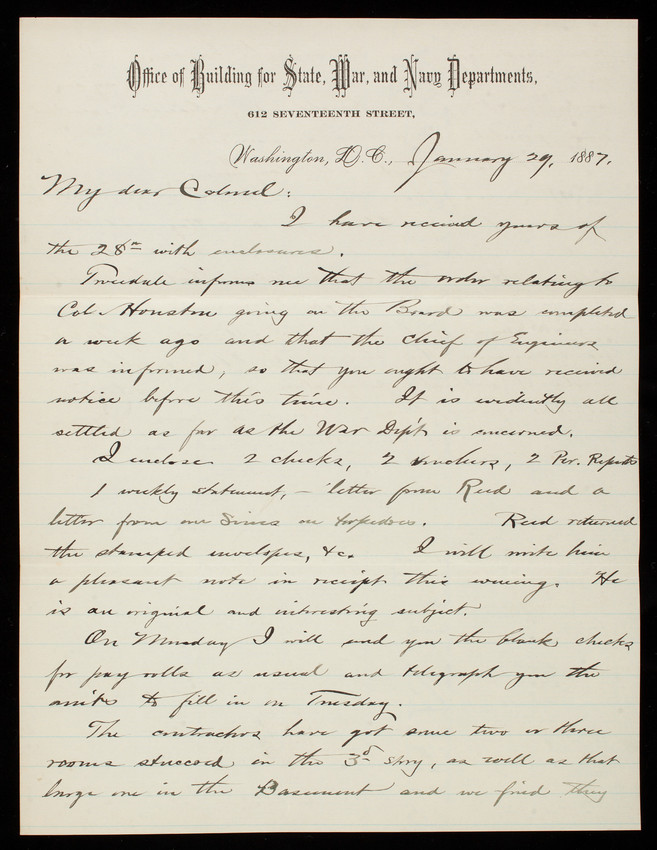 Office of Building for State, War, and Navy Departments,
612 SEVENTEENTH STREET,
Washington, D.C., January 29, 1887.
My dear Colonel:
I have received yours of
the 28th with enclosures.
Truesdale informs me that the order relating to
Col. Houston going on the Board was completed
a week ago and that the Chief of Engineers
was informed, so that you ought to have received
notice before this time. It is evidently all
settled as far as the War Dep't is concerned.
I enclose 2 checks, 2 vouchers, 2 Per. Reports
1 weekly statement, - letter from Reed and a
letter from one Sims on torpedoes. Reed returned
the stamped envelopes, &c. I will write him
a pleasant note in receipt this evening. He
is an original and interesting subject.
On Monday I will send you the blank checks
for pay rolls as usual and telegraph you the
amt's to fill in on Tuesday.
The contractors have got some two or three
rooms stuccoed in the 3d story, as well as that
large one in the Basement and we find they